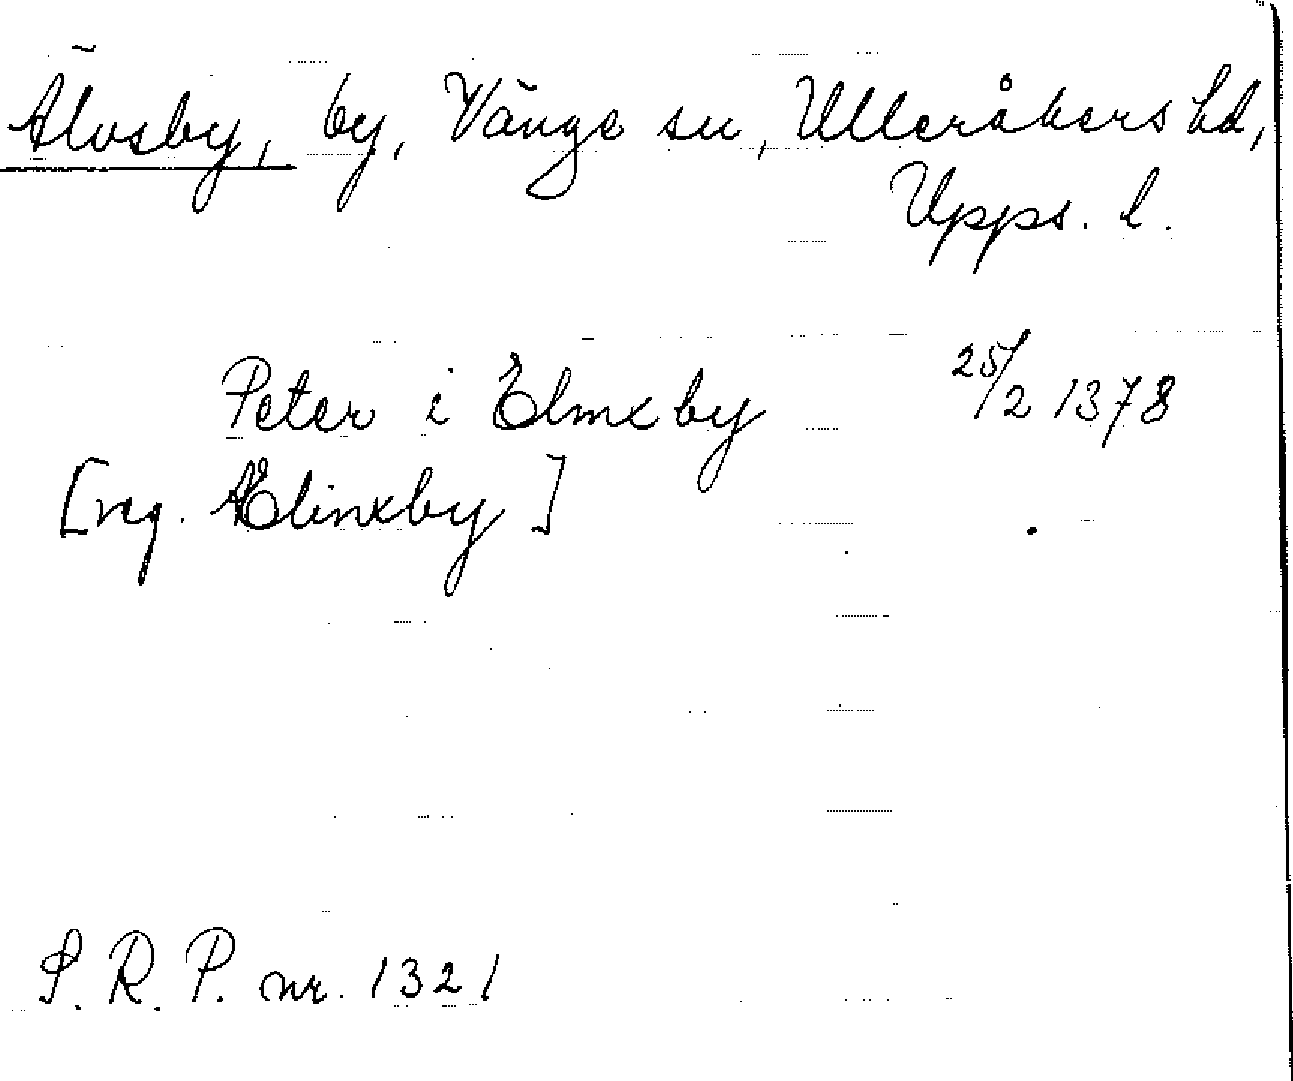 Älvsby, by, Vänge sn, Ulleråkers hd,
Upps. l.
Peter i Elmxby 25/2 1378
[reg. Elinxby]
S. R. P. nr. 1321